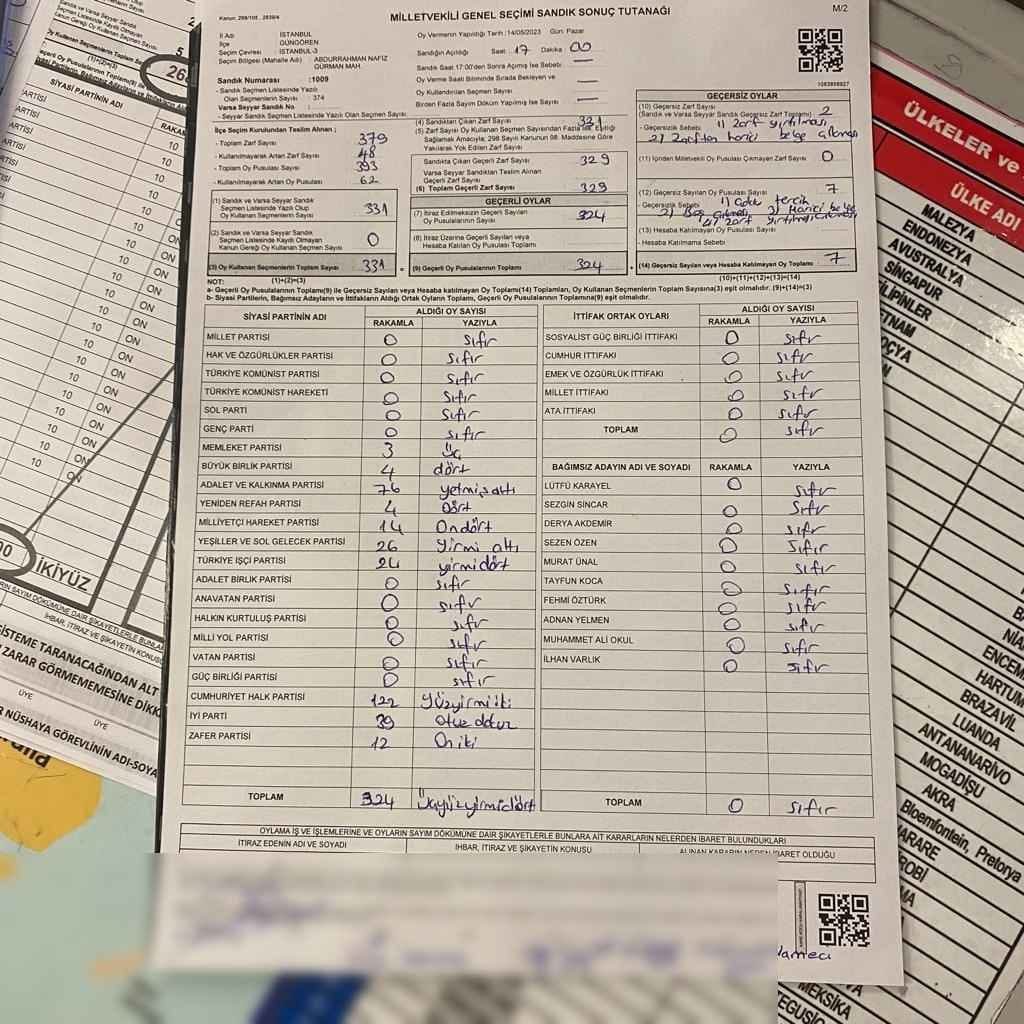 Kanun: 298/105 , 2839/4
MİLLETVEKİLİ GENEL SEÇİMİ SANDIK SONUÇ TUTANAĞI
M/2
İl Adı : İSTANBUL
İlçe : GÜNGÖREN
Seçim Çevresi : İSTANBUL-3
Seçim Bölgesi (Mahalle Adı) : ABDURRAHMAN NAFİZ GÜRMAN MAH.
Sandık Numarası : 1009
- Sandık Seçmen Listesinde Yazılı Olan Seçmenlerin Sayısı : 374
Varsa Seyyar Sandık No :
- Seyyar Sandık Seçmen Listesinde Yazılı Olan Seçmen Sayısı
Oy Vermenin Yapıldığı Tarih :14/05/2023 Gün: Pazar
Sandığın Açıldığı Saat: 17 Dakika 00
Sandık Saat 17:00'den Sonra Açılmış İse Sebebi: —
Oy Verme Saati Bitiminde Sırada Bekleyen ve Oy Kullandırılan Seçmen Sayısı —
Birden Fazla Sayım Döküm Yapılmış İse Sayısı —
İlçe Seçim Kurulundan Teslim Alınan ;
- Toplam Zarf Sayısı 379
- Kullanılmayarak Artan Zarf Sayısı 48
- Toplam Oy Pusulası Sayısı 393
- Kullanılmayarak Artan Oy Pusulası 62
(1) Sandık ve Varsa Seyyar Sandık Seçmen Listesinde Yazılı Olup Oy Kullanan Seçmenlerin Sayısı 331
(2) Sandık ve Varsa Seyyar Sandık Seçmen Listesinde Kayıtlı Olmayan Kanun Gereği Oy Kullanan Seçmen Sayısı 0
(3) Oy Kullanan Seçmenlerin Toplam Sayısı 331
(1)+(2)=(3)
(4) Sandıktan Çıkan Zarf Sayısı 331
(5) Zarf Sayısı Oy Kullanan Seçmen Sayısından Fazla ise, Eşitliği Sağlamak Amacıyla; 298 Sayılı Kanunun 98. Maddesine Göre Yakılarak Yok Edilen Zarf Sayısı
Sandıkta Çıkan Geçerli Zarf Sayısı 329
Varsa Seyyar Sandıktan Teslim Alınan Geçerli Zarf Sayısı
(6) Toplam Geçerli Zarf Sayısı 329
GEÇERLİ OYLAR
(7) İtiraz Edilmeksizin Geçerli Sayılan Oy Pusulalarının Sayısı 324
(8) İtiraz Üzerine Geçerli Sayılan veya Hesaba Katılan Oy Pusulası Toplamı
(9) Geçerli Oy Pusulalarının Toplamı 324
1083808927
GEÇERSİZ OYLAR
(10) Geçersiz Zarf Sayısı
(Sandık ve Varsa Seyyar Sandık Geçersiz Zarf Toplamı) 2
- Geçersizlik Sebebi 1) Zarf yırtılması
2) Zarftan harici belge çıkması
(11) İçinden Milletvekili Oy Pusulası Çıkmayan Zarf Sayısı 0
(12) Geçersiz Sayılan Oy Pusulası Sayısı 7
- Geçersizlik Sebebi 1) çoklu tercih
2) Boş çıkması 3) Harici belge
4) zarf yırtılması
(13) Hesaba Katılmayan Oy Pusulası Sayısı
- Hesaba Katılmama Sebebi
(14) Geçersiz Sayılan veya Hesaba Katılmayan Oy Toplamı 7
(10)+(11)+(12)+(13)=(14)
NOT:
a- Geçerli Oy Pusulalarının Toplamı(9) ile Geçersiz Sayılan veya Hesaba Katılmayan Oy Toplamı(14) Toplamları, Oy Kullanan Seçmenlerin Toplam Sayısına(3) eşit olmalıdır. (9)+(14)=(3)
b- Siyasi Partilerin, Bağımsız Adayların ve İttifakların Aldığı Ortak Oyların Toplamı, Geçerli Oy Pusulalarının Toplamına(9) eşit olmalıdır.
SİYASİ PARTİNİN ADI ALDIĞI OY SAYISI
RAKAMLA YAZIYLA
MİLLET PARTİSİ 0 sıfır
HAK VE ÖZGÜRLÜKLER PARTİSİ 0 sıfır
TÜRKİYE KOMÜNİST PARTİSİ 0 sıfır
TÜRKİYE KOMÜNİST HAREKETİ 0 sıfır
SOL PARTİ 0 sıfır
GENÇ PARTİ 0 sıfır
MEMLEKET PARTİSİ 3 üç
BÜYÜK BİRLİK PARTİSİ 4 dört
ADALET VE KALKINMA PARTİSİ 76 yetmişaltı
YENİDEN REFAH PARTİSİ 4 Dört
MİLLİYETÇİ HAREKET PARTİSİ 14 Ondört
YEŞİLLER VE SOL GELECEK PARTİSİ 26 Yirmi altı
TÜRKİYE İŞÇİ PARTİSİ 24 yirmidört
ADALET BİRLİK PARTİSİ 0 sıfır
ANAVATAN PARTİSİ 0 sıfır
HALKIN KURTULUŞ PARTİSİ 0 sıfır
MİLLİ YOL PARTİSİ 0 sıfır
VATAN PARTİSİ 0 sıfır
GÜÇ BİRLİĞİ PARTİSİ 0 sıfır
CUMHURİYET HALK PARTİSİ 122 Yüzyirmiiki
İYİ PARTİ 39 otuz dokuz
ZAFER PARTİSİ 12 On iki
TOPLAM 324 Üçyüzyirmidört
İTTİFAK ORTAK OYLARI ALDIĞI OY SAYISI
RAKAMLA YAZIYLA
SOSYALİST GÜÇ BİRLİĞİ İTTİFAKI 0 sıfır
CUMHUR İTTİFAKI 0 sıfır
EMEK VE ÖZGÜRLÜK İTTİFAKI 0 sıfır
MİLLET İTTİFAKI 0 sıfır
ATA İTTİFAKI 0 sıfır
TOPLAM 0 sıfır
BAĞIMSIZ ADAYIN ADI VE SOYADI RAKAMLA YAZIYLA
LÜTFÜ KARAYEL 0 sıfır
SEZGİN SİNCAR 0 sıfır
DERYA AKDEMİR 0 sıfır
SEZEN ÖZEN 0 sıfır
MURAT ÜNAL 0 sıfır
TAYFUN KOCA 0 sıfır
FEHMİ ÖZTÜRK 0 sıfır
ADNAN YELMEN 0 sıfır
MUHAMMET ALİ OKUL 0 sıfır
İLHAN VARLIK 0 sıfır
TOPLAM 0 sıfır
OYLAMA İŞ VE İŞLEMLERİNE VE OYLARIN SAYIM DÖKÜMÜNE DAİR ŞİKAYETLERLE BUNLARA AİT KARARLARIN NELERDEN İBARET BULUNDUKLARI
İTİRAZ EDENİN ADI VE SOYADI İHBAR, İTİRAZ VE ŞİKAYETİN KONUSU ALINAN KARARIN NEDEN İBARET OLDUĞU
(1)+(2)=(3)
SİYASİ PARTİNİN ADI
RAKAM
10
10
10
10
10
10 ON
10 ON
10 ON
10 ON
10 ON
İKİYÜZ
İHBAR, İTİRAZ VE ŞİKAYETİN KONUSU
SİSTEME TARANACAĞINDAN ALT
ZARAR GÖRMEMESİNE DİKK
ÜYE ÜYE
NÜSHAYA GÖREVLİNİN ADI-SOYA
ÜLKELER ve
ÜLKE ADI
MALEZYA
ENDONEZYA
AVUSTRALYA
SİNGAPUR
BRAZAVİL
LUANDA
ANTANANARİVO
MOGADİŞU
AKRA
Bloemfontein, Pretorya
HARARE
MEKSİKA